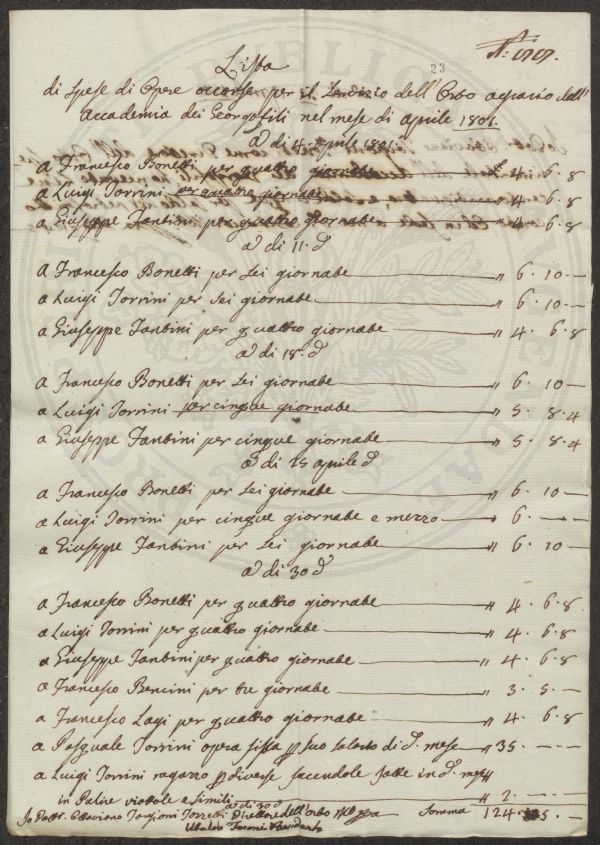 23
Lista
di Spese di Opere occorse per il Servizio dell' Orto agrario dell'
Accademia dei Georgofili nel mese di aprile 1801.
a dì 4. aprile 1801
a Francesco Bonetti per quattro giornate 4. 6. 8
a Luigi Torrini per quattro giornate 4. 6. 8
a Giuseppe Fantini per quattro giornate " 4. 6. 8
a dì 11. d.
a Francesco Bonetti per sei giornate " 6. 10 —
a Luigi Torrini per sei giornate " 6. 10 —
a Giuseppe Fantini per quattro giornate " 4. 6. 8
a dì 18. d.
a Francesco Bonetti per sei giornate " 6. 10 —
a Luigi Torrini per cinque giornate " 5. 8. 4
a Giuseppe Fantini per cinque giornate " 5. 8. 4
a dì 25 aprile d.
a Francesco Bonetti per sei giornate " 6. 10 —
a Luigi Torrini per cinque giornate e mezzo " 6. —
a Giuseppe Fantini per sei giornate " 6. 10 —
a dì 30 d.
a Francesco Bonetti per quattro giornate " 4. 6. 8
a Luigi Torrini per quattro giornate " 4. 6. 8
a Giuseppe Fantini per quattro giornate " 4. 6. 8
a Francesco Bencini per tre giornate " 3. 5. —
a Francesco Lagi per quattro giornate " 4. 6. 8
a Pasquale Torrini opera fissa p suo salario di d. mese " 35. — —
a Luigi Torrini ragazzo p diverse faccende fatte in d. mese
in Pulire viottole e simili " 2. — —
a dì 30 d.
Io Dott. Ottaviano Targioni Tozzetti Direttore dell'Orto Somma 124. 5. —
Ubaldo Presidente